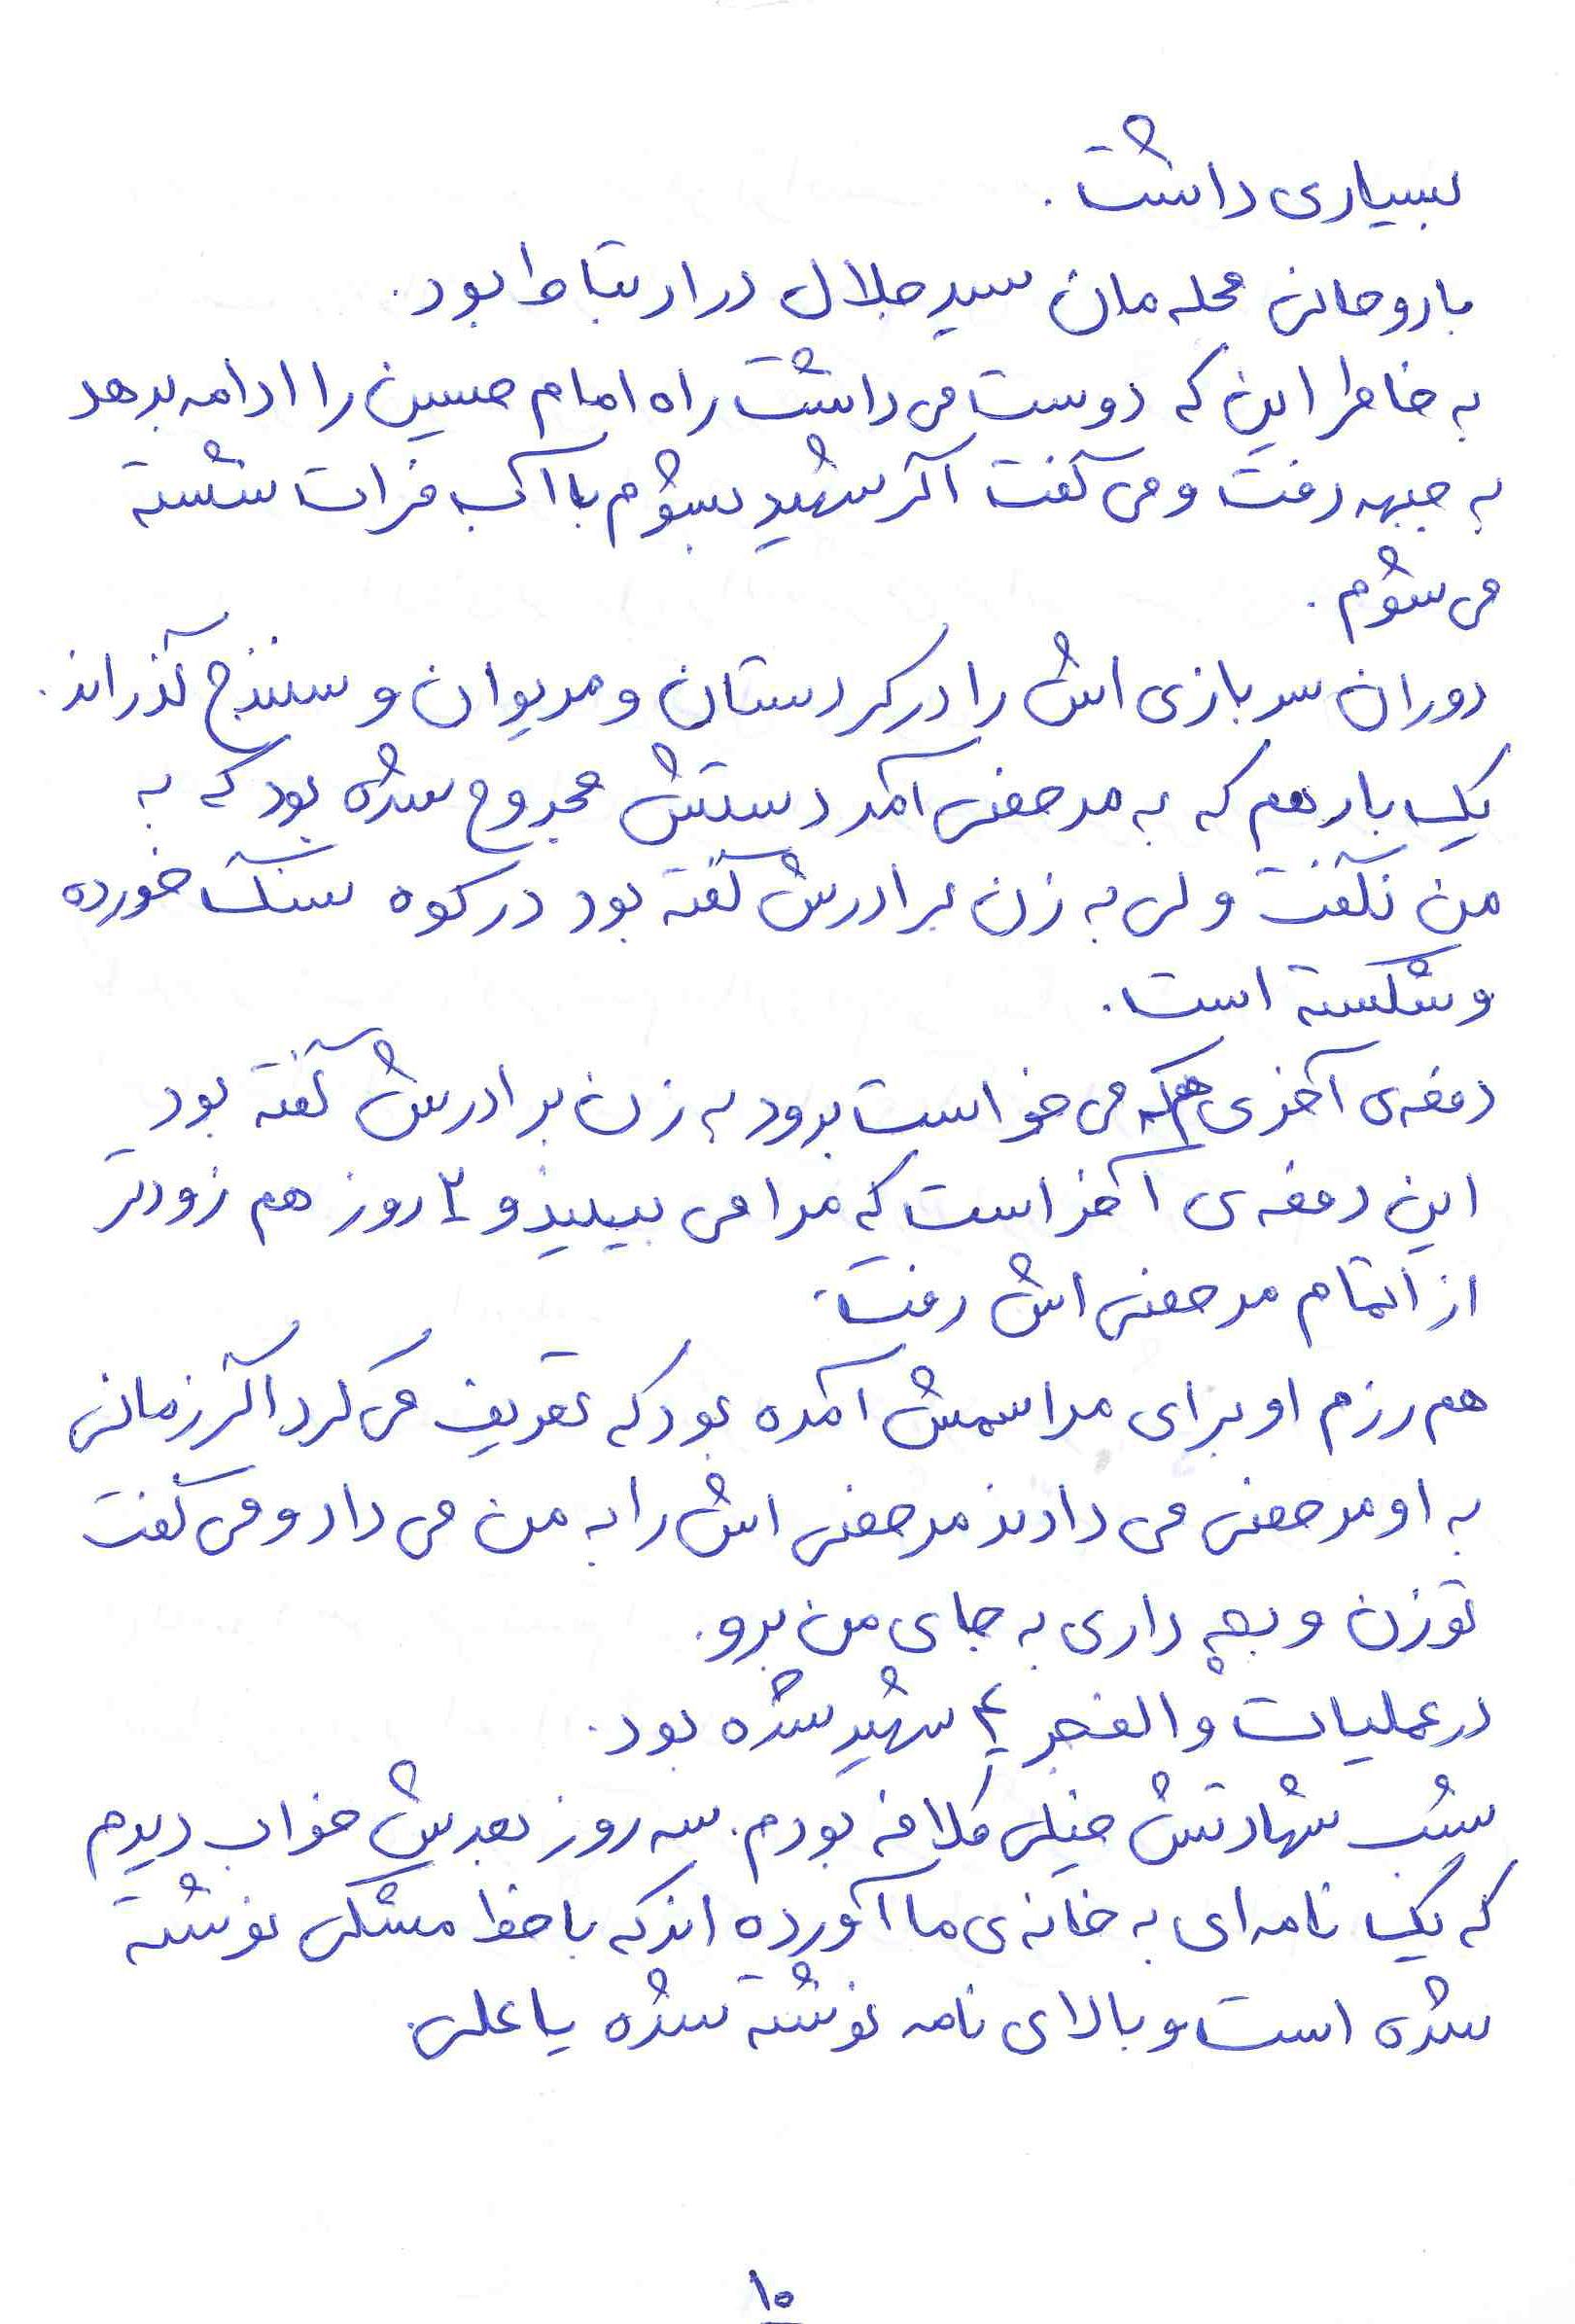 بسیاری داشت.
با روحانی محله مان سید جلال در ارتباط بود.
به خاطر این که دوست می داشت راه امام حسین را ادامه بدهد
به جبهه رفت و می گفت اگر شهید بشوم با آب فرات شسته
می شوم.
دوران سربازی اش را در کردستان و مریوان و سنندج گذراند.
یک بار هم که به مرخصی آمد دستش مجروح شده بود که به
من نگفت ولی به زن برادرش گفته بود در کوه سنگ خورده
و شکسته است.
دفعه ی آخری هم که می خواست برود به زن برادرش گفته بود
این دفعه ی آخر است که مرا می بینید و ۲ روز هم زودتر
از اتمام مرخصی اش رفت.
هم رزم او برای مراسمش آمده بود که تعریف می کرد اگر زمانی
به او مرخصی می دادند مرخصی اش را به من می داد و می گفت
تو زن و بچه داری به جای من برو.
در عملیات والفجر ۴ شهید شده بود.
شب شهادتش خیلی کلافه بودم. سه روز بعدش خواب دیدم
که یک نامه ای به خانه ی ما آورده اند که با خط مشکی نوشته
شده است و بالای نامه نوشته شده یا علی.
۱۰